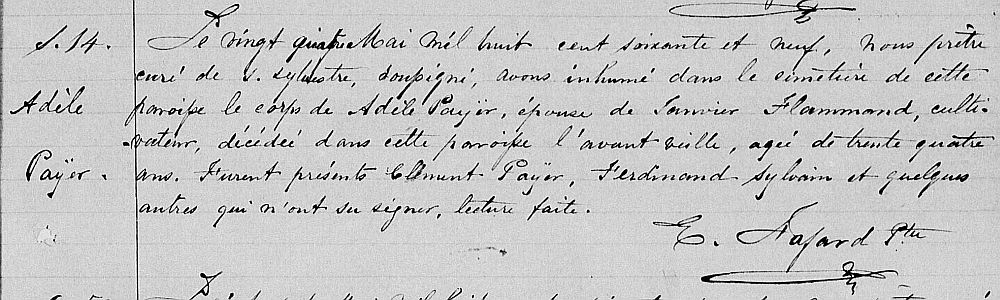 S. 14.
Adèle
Payër.
Le vingt quatre Mai mil huit cent soixante et neuf, nous prêtre
curé de S. Sylvestre, soussigné, avons inhumé dans le cimetière de cette
paroisse le corps de Adèle Payër, épouse de Janvier Flammand, culti-
-vateur, décédée dans cette paroisse l'avant veille, agée de trente quatre
ans. Furent présents Clément Payër, Ferdinand Sylvain et quelques
autres qui n'ont su signer, lecture faite.
E. Fafard Ptre